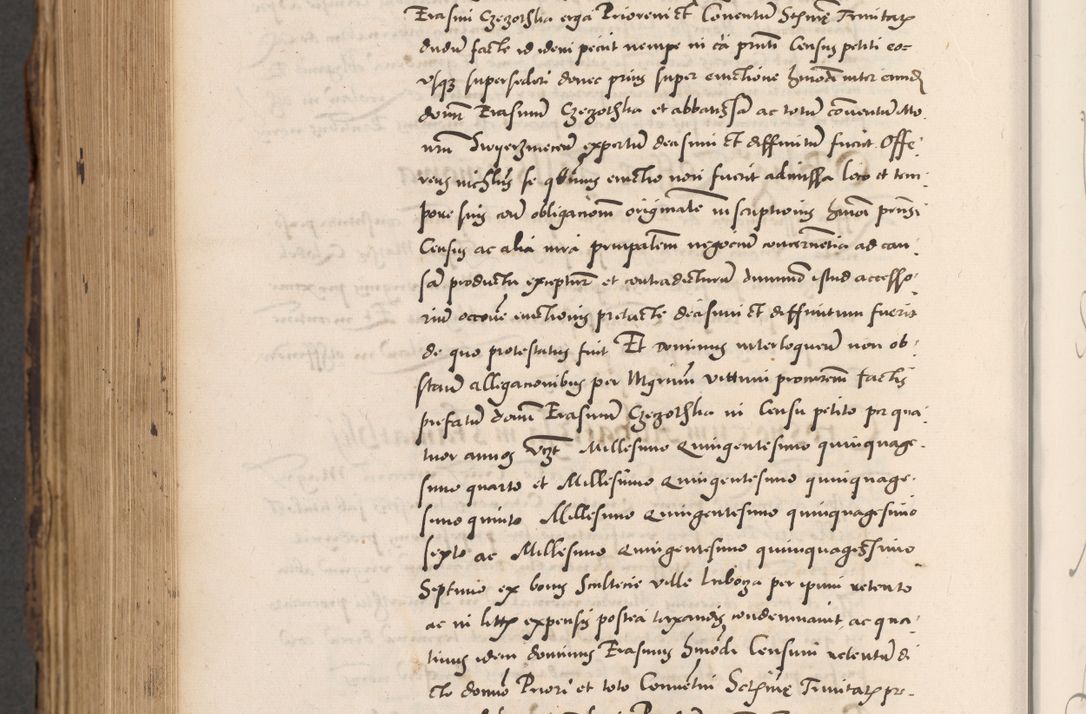 Erasmi Czezothka erga Priorem et Conventum Sctissime Trinitatis
dudum facte id idem peciit nempe in ca prnti Census petiti eoc
usqz supersederi donec prius super evictione hmodi inter eundem
domin Erasmum Czezothka et abbatissam ac totum conventum Mo
nrum Swyerzinecen expertum decisum et diffinitum fuerit. Offe
rens nichilominus se evictio non fuerit admissa loco et tem
pore suis coram obligacionem originalem inscriptionis hmodi
Census ac alia iura principalem negocium concernentia ad cau
sam producta exceptur et contradicturum dummodo istud accesso
rium occasione evictionis pretacte decisum et diffinitum fuerit
de quo protestatus fuit Et dominus interloquendo non ob
stantibus allegacionibus per Mgrum procuratorem factis
prefatum domin Erasmum Czezothka in Censu petito pro qua
tuor annos vzt Millesimo Quingentesimo quinquage
simo quarto et Millesimo Quingentesimo quinquage
simo quinto Millesimo Quingentesimo quinquagesimo
sexto ac Millesimo Quingentesimo quinquagesimo
Septimo ex bonis Scultecie ville Lubocza per ipsum retento
ac in litis expensis postea taxandis condemnavit ac qua
tinus idem dominus Erasmus hmodi Censum retentum di
cto domino Priori et toto Conventui Sctissime Trinitatis pre